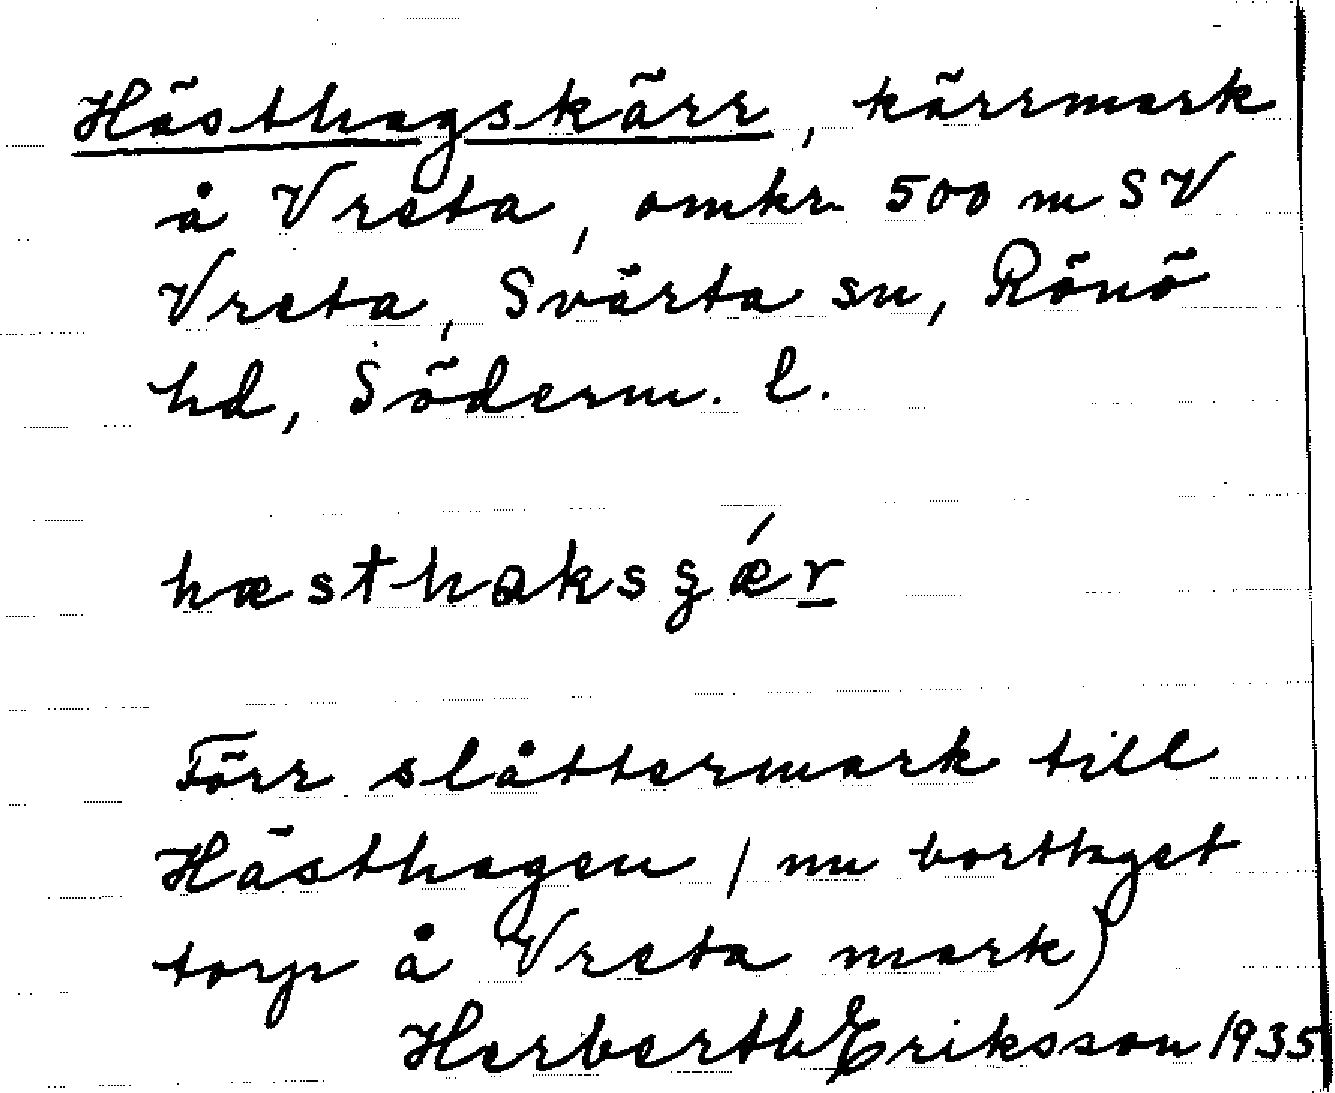 Hästhagskärr, kärrmark
å Vreta, omkr. 500 m SV
Vreta, Svärta sn, Rönö
hd, Söderm. l.
hæsthaksʂǽr
Förr slåttermark till
Hästhagen (nu borttaget
torp å Vreta mark)
Herberth Eriksson 1935